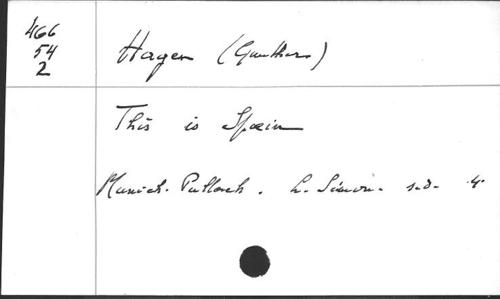 466
54
2
Hagen (Gunthers)
This is Spain
Munich-Pullach. L. Simon. s.d. 4.